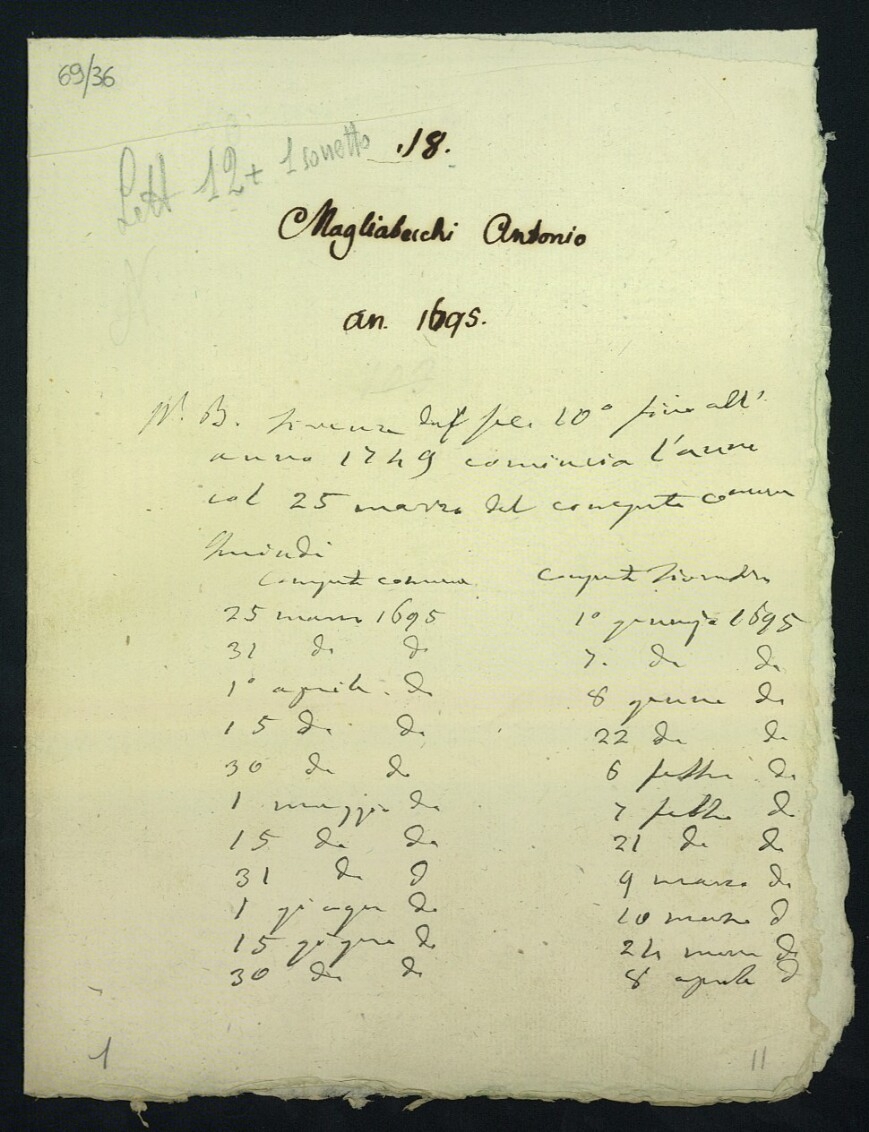 69/36
Lett 12 + 1 sonetto
18.
Magliabecchi Antonio
an. 1695.
N. B. Firenze dal sec. 10° fino all'
anno 1749 comincia l'anno
col 25 marzo del computo comune
Quindi
Computo comune computo Fiorentino
25 marzo 1695 1° gennajo 1695
31 do do 7. do do
1° aprile do 8 genna do
15 do do 22 do do
30 do do 6 febbr do
1 maggio do 7 febbr do
15 do do 21 do do
31 do d 9 marzo do
1 giugno do 10 marzo d
15 giugno do 24 marzo do
30 do do 8 aprile d
1 11